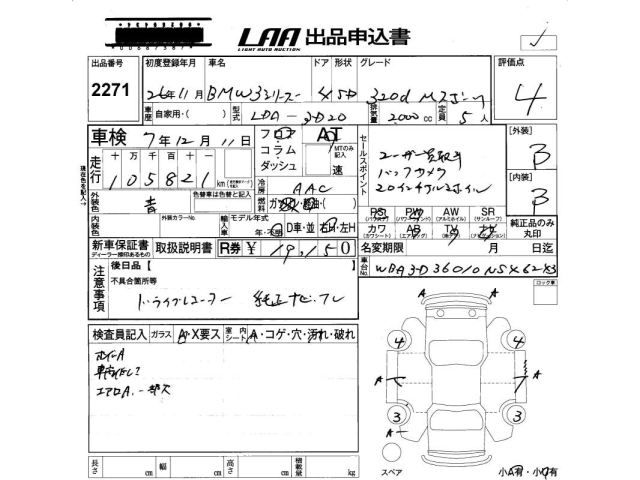 LAA 出品申込書
LIGHT AUTO AUCTION
出品番号 初度登録年月 車名 ドア 形状 グレード 評価点
2271 26年11月 BMW3シリーズ 4 5D 320d Mスポーツ 4
車歴 自家用・( ) 型式 LDA-3D20 排気量 2000cc 定員 5人
車検 7年12月11日 フロア コラム ダッシュ AT MTのみ記入 速
セールスポイント
ユーザー買取車
バックカメラ
20インチアルミホイル
[外装] B
[内装] B
走行 十万 万 千 百 十 一
105821km
現在色を記入→
冷房 AAC
燃料 ガソリン・軽油・( )
外装色 青 色替車は色替と記入
内装色 外装カラーNo. 輸入車 モデル年式 年・不明 D車・並 右H・左H
PS (パワステ) PW (パワーウィンド) AW (アルミホイル) SR (サンルーフ)
カワ (カワシート) AB (エアバッグ) TV ナビ
純正品のみ丸印
新車保証書 ディーラー捺印あるもの 取扱説明書 R券 ¥ 19,150
名変期限 月 日迄
車台No. WBA3D36010NS
注意事項 後日品【
不具合箇所等
ドライブレコーダー 純正ナビ、TV
ロック車
検査員記入 ガラス A・X要ス 室内シート A・コゲ・穴・汚れ・破れ
ホイールA
エアロA
A A
4 4
A A
3 3
A
長さ cm 幅 cm 高さ cm 積載量 kg
スペア
小A有・小U有